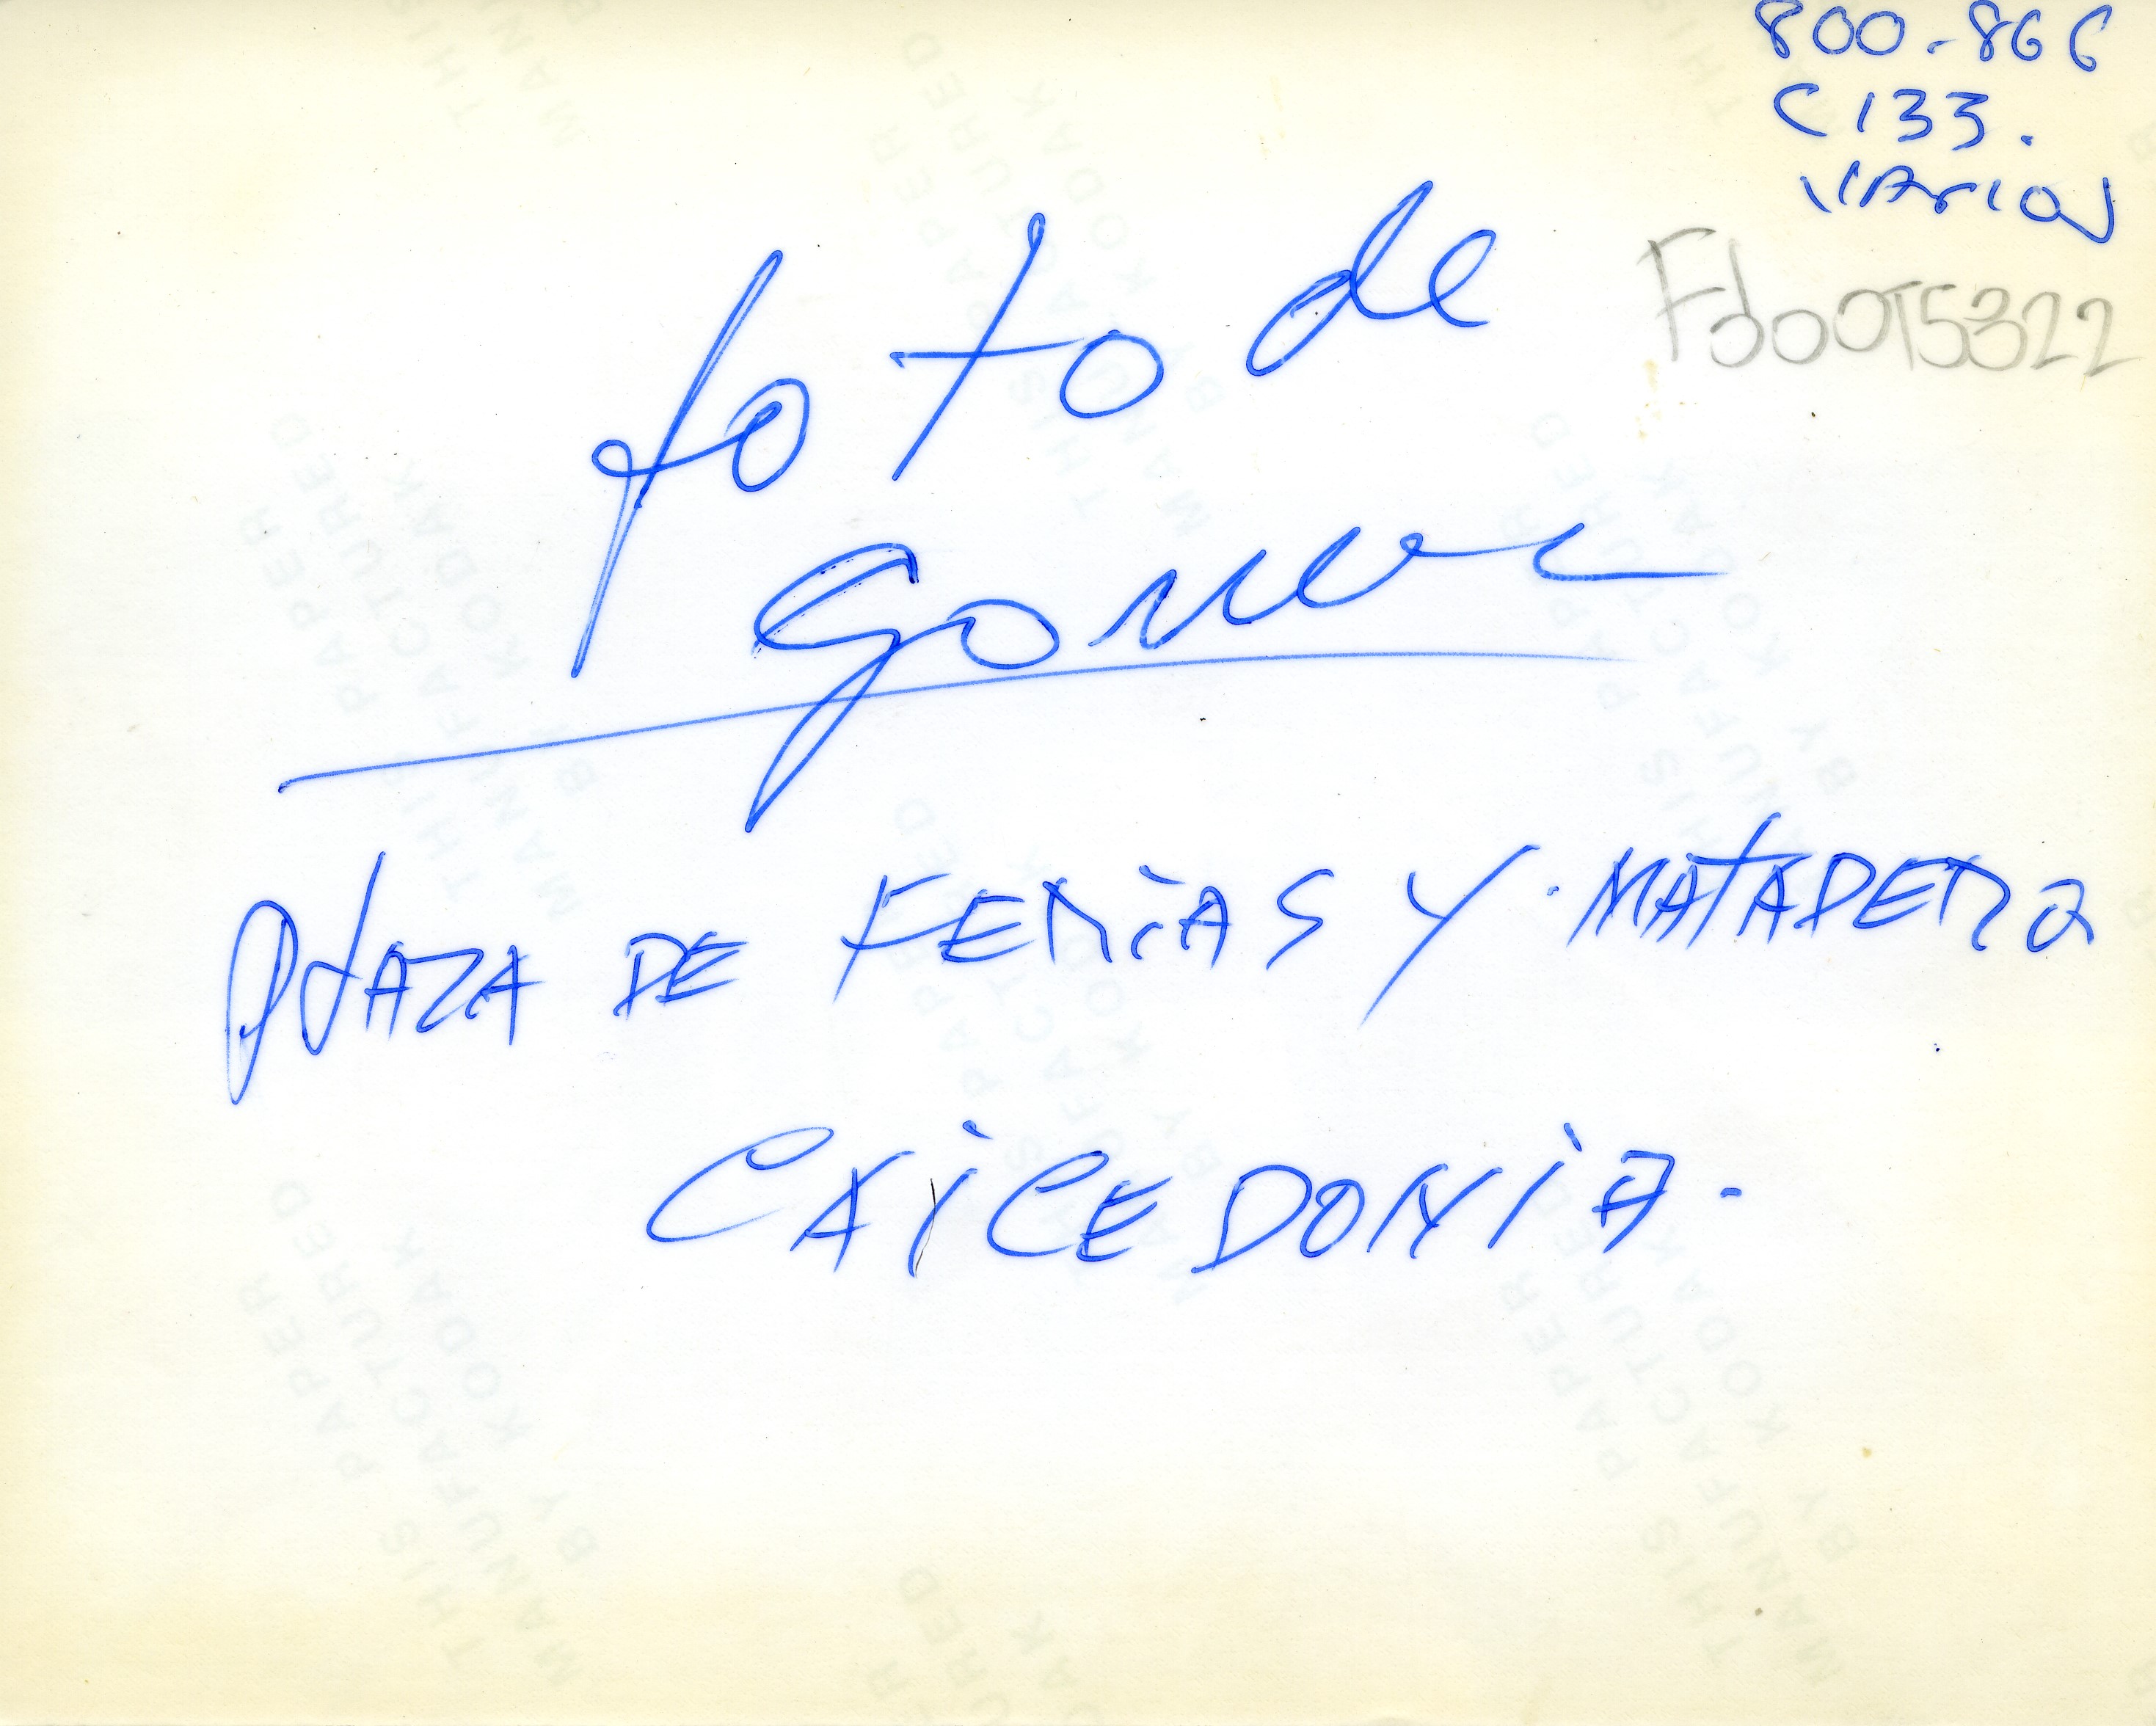 800-866
C133.
VARIOS
Fdo0T5322
foto de
PLAZA DE FERIAS Y MATADERO
CAICEDONIA.
THIS PAPER
MANUFACTURED
BY KODAK